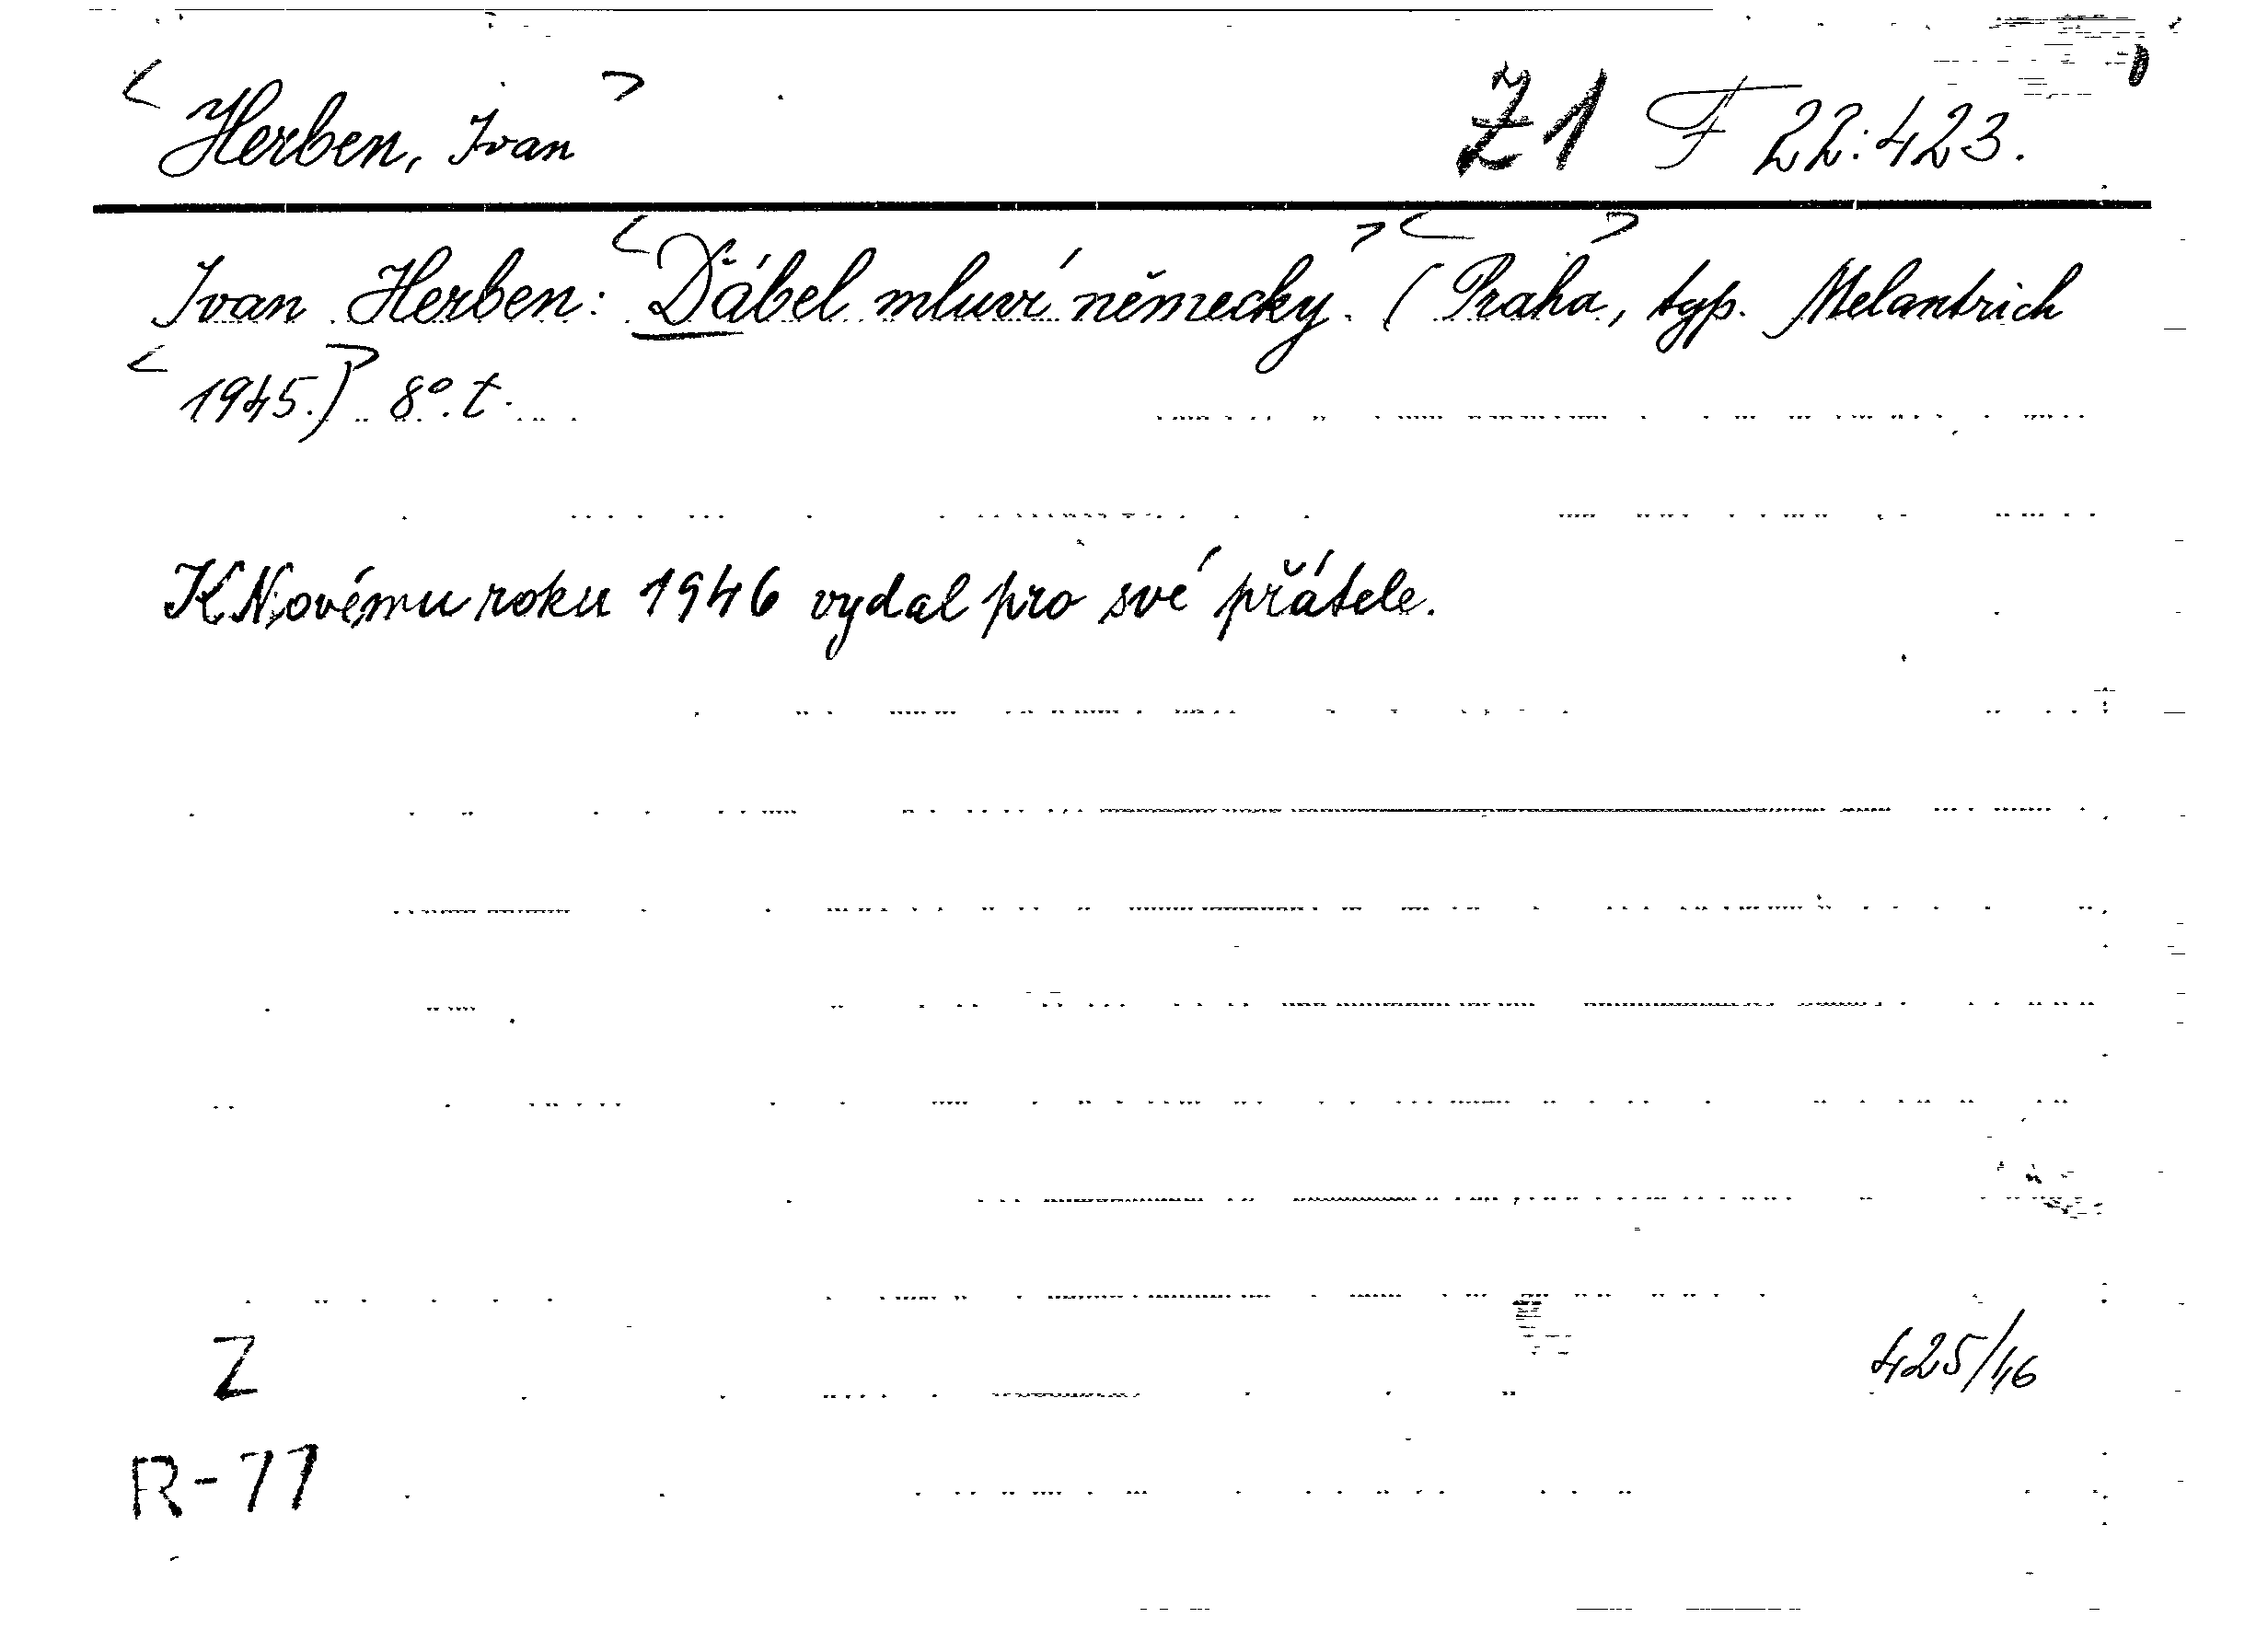 <Herben, Ivan> Z1 F 22:423.
Ivan Herben: <Ďábel mluví německy.> (<Praha>, typ. Melantrich
<1945.)> 8°. t.
K Novému roku 1946 vydal pro své přátele.
Z 425/46
R-77